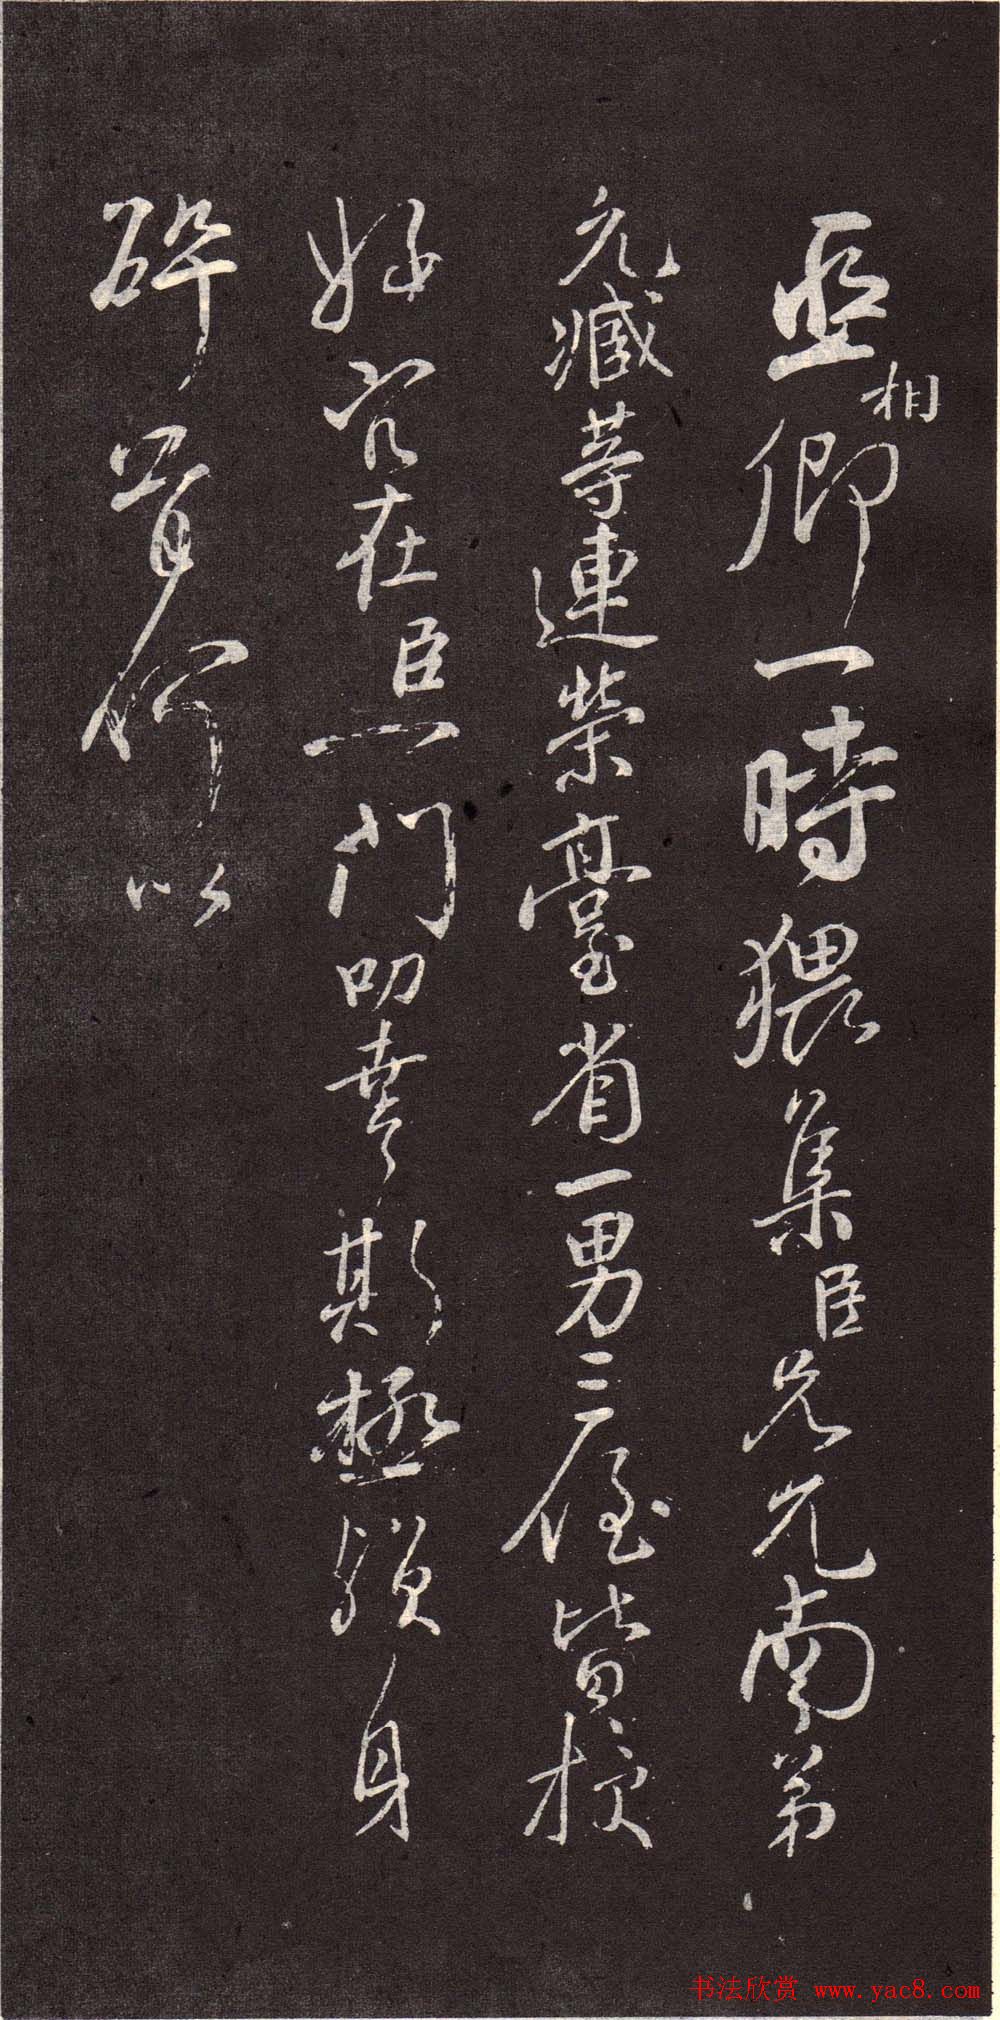 亞相卿一時猥集臣兄允南弟
允臧等連榮臺省一男三侄皆授
好官在臣一門叨幸斯極殞身
碎首何以
书法欣赏 www.yac8.com